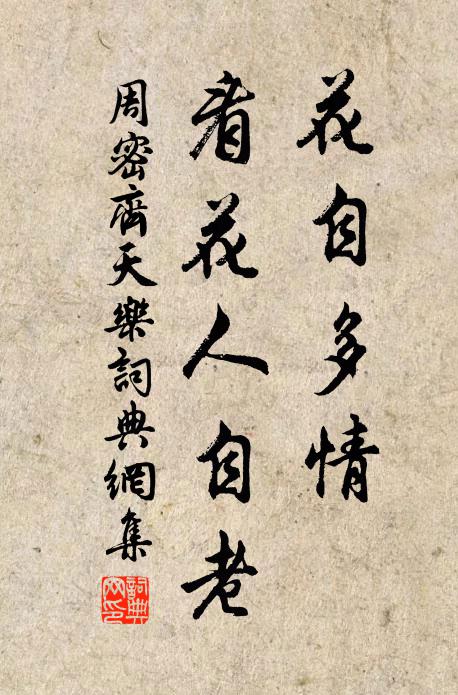 花自多情
看花人自老
周密齊天樂詞典網集
詞典網印